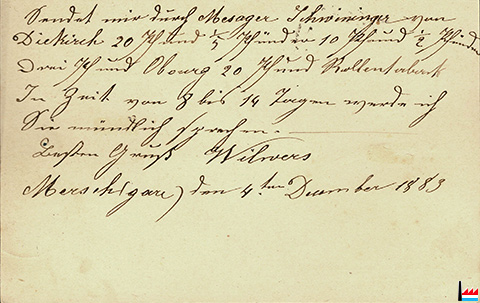 Sendet mir durch Messager Schwininger von
Diekirch 20 Pfund 1/5 Pfünd in 10 Pfund 1/2 Pfünden
Drei Pfund Obourg 20 Pfund Rollentaback
In Zeit von 8 bis 14 Tagen werde ich
Sie mündlich sprechen.
Besten Gruß Wilwers
Mersch (gare) den 4ten December 1883